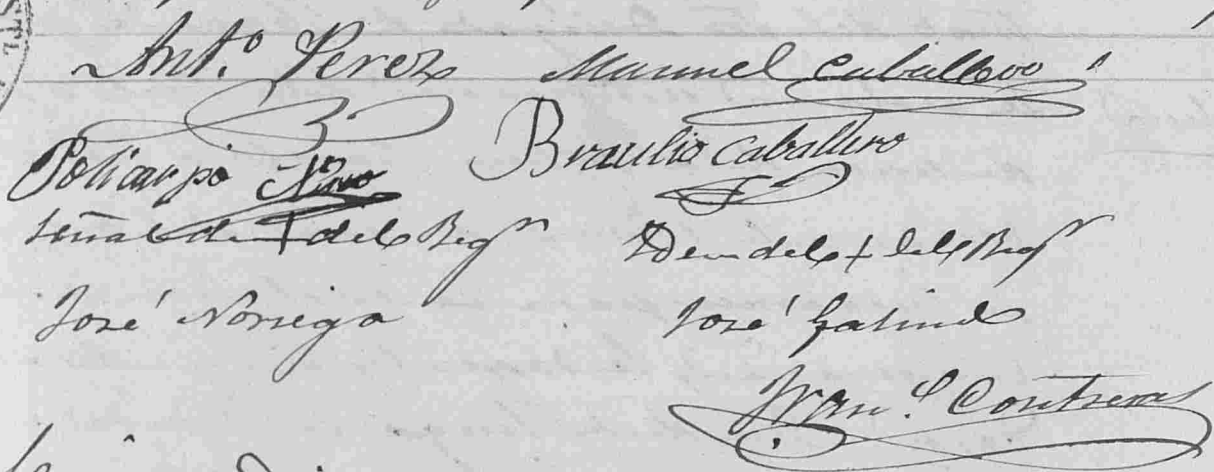 Ant.º Perez Manuel Caballero
Policarpo Nino Braulio Caballero
Señal de + del Regr Idem del + del Regr
José Noriega José Galind
Fran.co Contreras